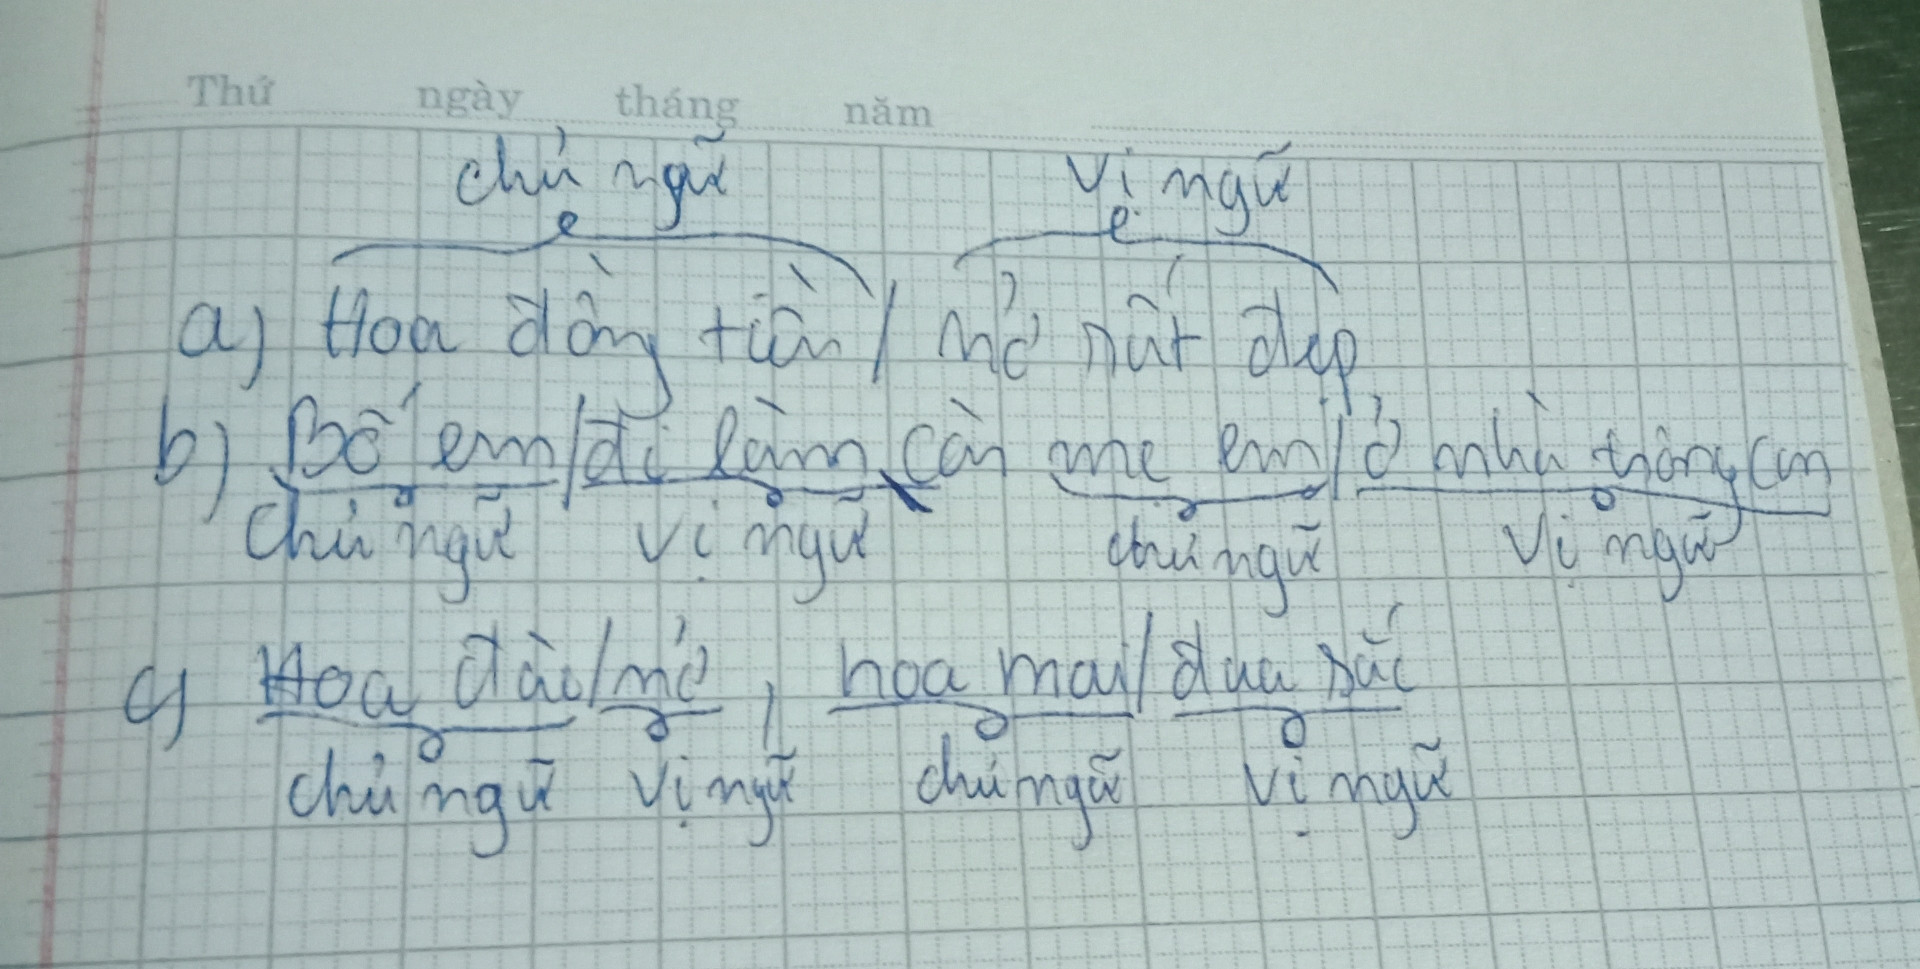 Thứ ngày tháng năm
chủ ngữ vị ngữ
a) Hoa đồng tiền / mở rất đẹp
b) Bố em / đi làm, còn mẹ em / ở nhà trông con
chủ ngữ vị ngữ chủ ngữ vị ngữ
c) Hoa đào / nở, hoa mai / đua sắc
chủ ngữ vị ngữ chủ ngữ vị ngữ